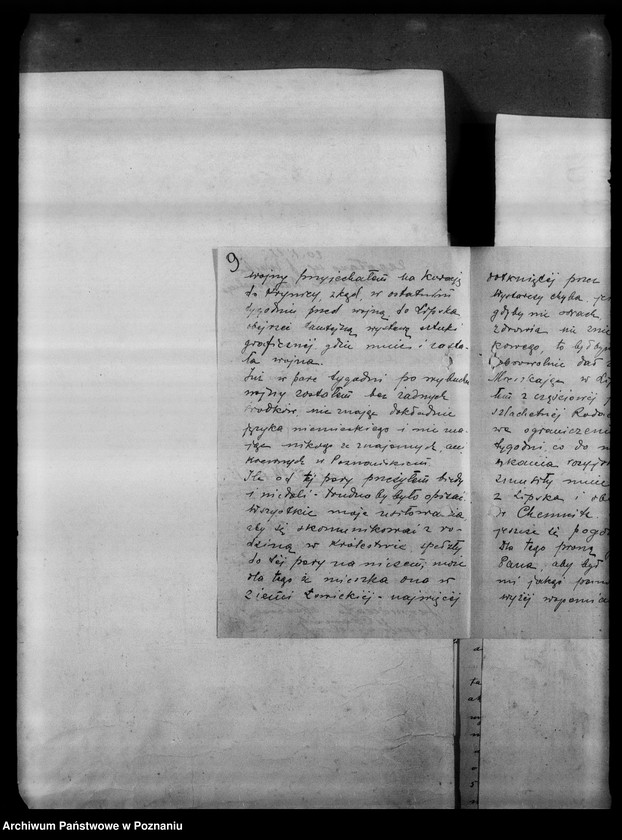 9
wojny przyjechałem na kurację
do Krynicy, zkąd, w ostatnim
tygodniu przed wojną, do Lipska
obejrzeć tamtejszą wystawę sztuki
graficznej, gdzie mnie i zasta-
ła wojna.
Już w parę tygodni po wybuchu
wojny zostałem bez żadnych
środków, nie znając dokładnie
języka niemieckiego i nie ma-
jąc nikogo ze znajomych, ani
krewnych w Poznańskiem.
Ile od tej pory przeżyłem biedy
i niedoli - trudno by było opisać.
Wszystkie moje usiłowania,
aby się skomunikować z ro-
dziną w Królestwie, spełzły
do tej pory na niczem, może
dla tego że mieszka ona w
Ziemi Łowickiej - najwięcej
dotkniętej przez
Wystarczy chyba
gdyby nie strach
zdrowia nie
kowego, to byłbym
dobrowolnie dał
Mieszkając w
łem z częściowej
szlachetnej
we ograniczenia
tygodni, co do
zmusiły mnie
z Lipska i
do Chemnitz
jeszcze
Dla tego proszę
Pana, aby był
mi jakąś
wyżej
Archiwum Państwowe w Poznaniu